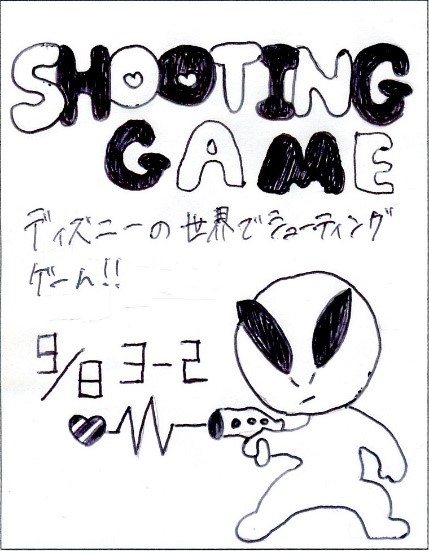 SHOOTING
GAME
ディズニーの世界でシューティング
ゲーム!!
9/8 3-2